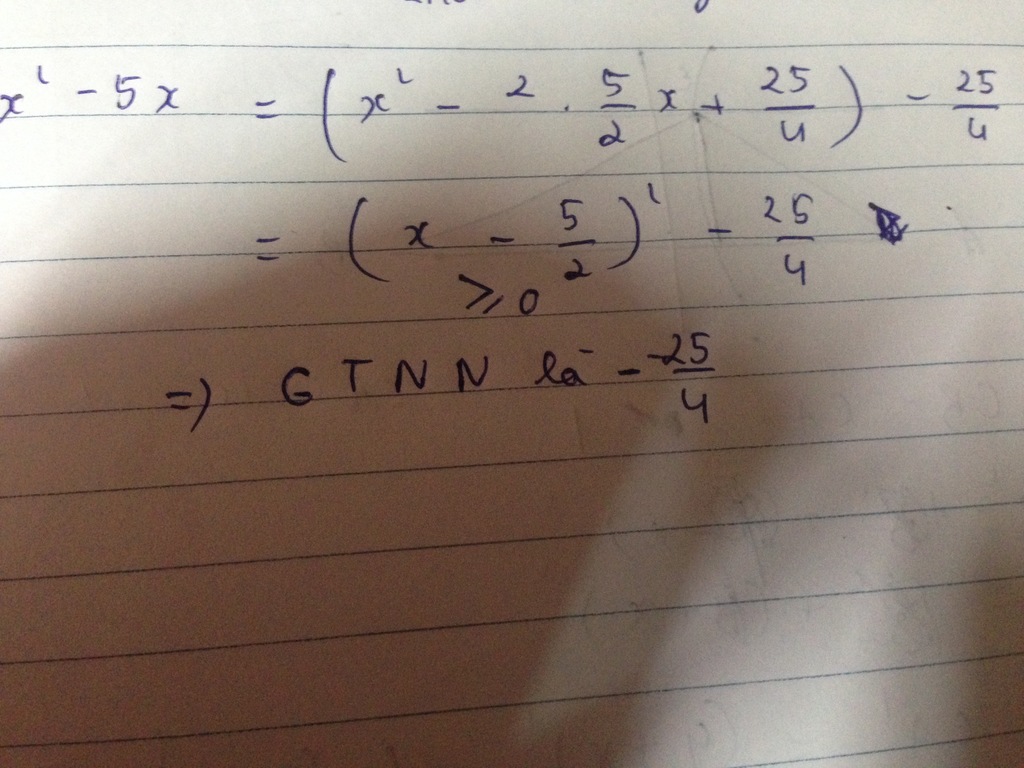 x² - 5x = (x² - 2 . 5/2 x + 25/4) - 25/4
= (x - 5/2)² - 25/4
≥ 0
=) GTNN là - 25/4